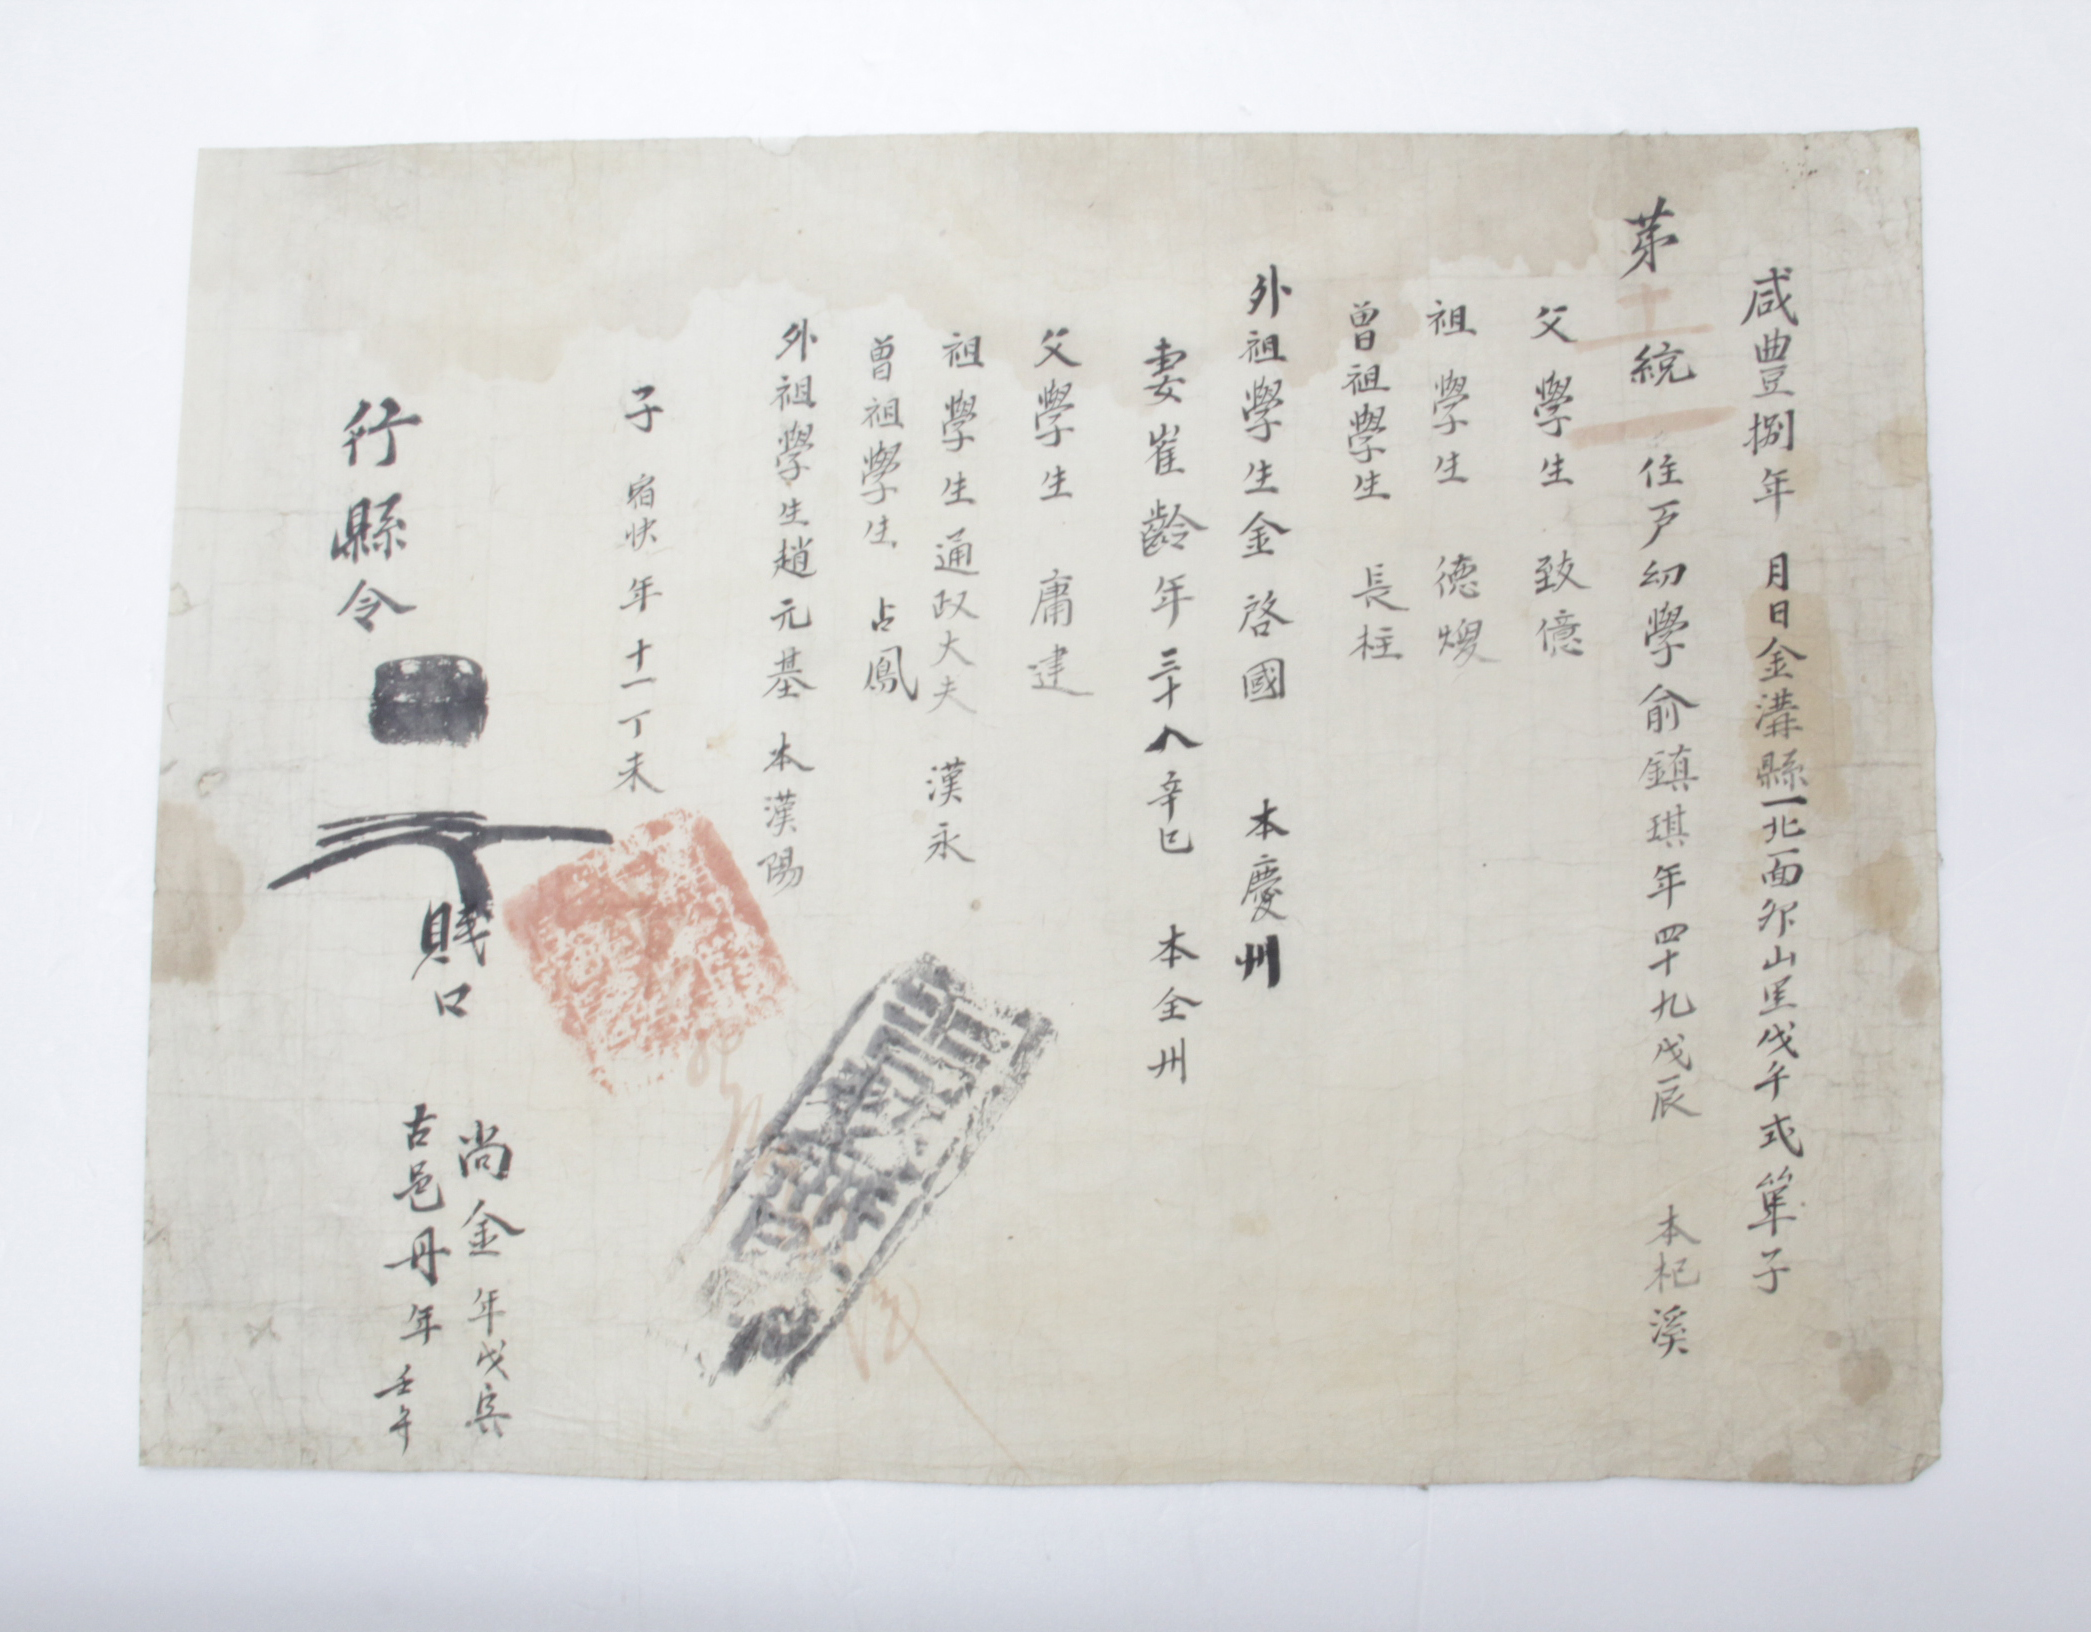 咸豊捌年 月日金溝縣一北面卯山里戊午式單子
茅十統一住戶幼學兪鎮琪年四十九戊辰 本杞溪
父學生 致億
祖學生 德㷞
曾祖學生 長柱
外祖學生金啓國 本慶州
妻崔齡年三十八辛巳 本全州
父學生 庸建
祖學生通政大夫 漢永
曾祖學生 占鳳
外祖學生趙元基 本漢陽
子 宿快 年十一丁未
賎口 尚金年戊寅
古邑丹年壬午
行縣令